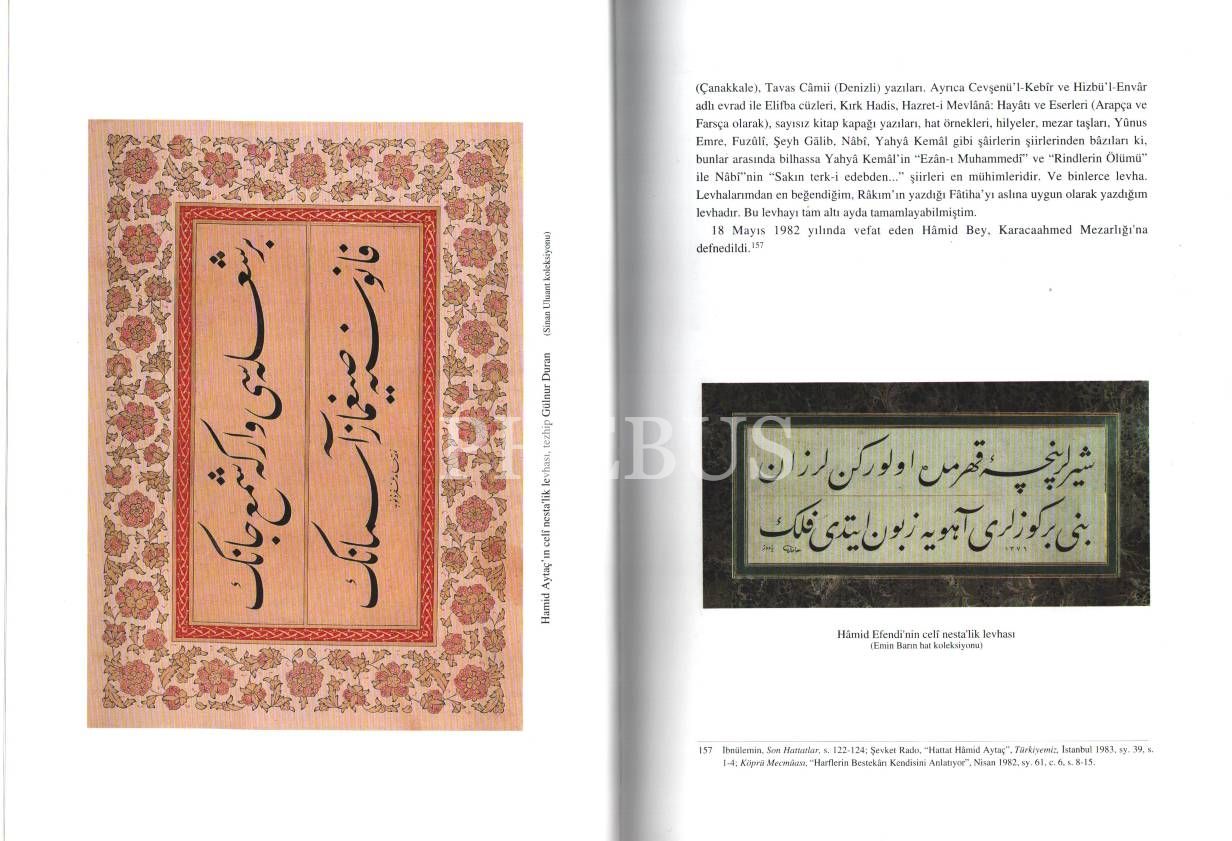 بر شعله‌سی وار که شمع جانك
فانوسنه صیغماز آسمانك
Hamid Aytaç'ın celî nesta'lik levhası, tezhip Gülnur Duran (Sinan Uluant koleksiyonu)
(Çanakkale), Tavas Câmii (Denizli) yazıları. Ayrıca Cevşenü'l-Kebîr ve Hizbü'l-Envâr
adlı evrad ile Elifba cüzleri, Kırk Hadis, Hazret-i Mevlânâ: Hayâtı ve Eserleri (Arapça ve
Farsça olarak), sayısız kitap kapağı yazıları, hat örnekleri, hilyeler, mezar taşları, Yûnus
Emre, Fuzûlî, Şeyh Gälib, Nâbî, Yahyâ Kemâl gibi şâirlerin şiirlerinden bâzıları ki,
bunlar arasında bilhassa Yahyâ Kemâl'in “Ezân-ı Muhammedî” ve “Rindlerin Ölümü”
ile Nâbî”nin “Sakın terk-i edebden...” şiirleri en mühimleridir. Ve binlerce levha.
Levhalarımdan en beğendiğim, Râkım'ın yazdığı Fâtiha'yı aslına uygun olarak yazdığım
levhadır. Bu levhayı tam altı ayda tamamlayabilmiştim.
18 Mayıs 1982 yılında vefat eden Hâmid Bey, Karacaahmed Mezarlığı'na
defnedildi.157
PHEBUS
شیرلر پنچهٔ قهرمدن اولورکن لرزان
بنی بر کوزلری آهویه زبون ایتدی فلك
١٣٧٦
Hâmid Efendi'nin celî nesta'lik levhası
(Emin Barın hat koleksiyonu)
157 İbnülemin, Son Hattatlar, s. 122-124; Şevket Rado, “Hattat Hâmid Aytaç”, Türkiyemiz, İstanbul 1983, sy. 39, s.
1-4; Köprü Mecmûası, “Harflerin Bestekârı Kendisini Anlatıyor”, Nisan 1982, sy. 61, c. 6, s. 8-15.